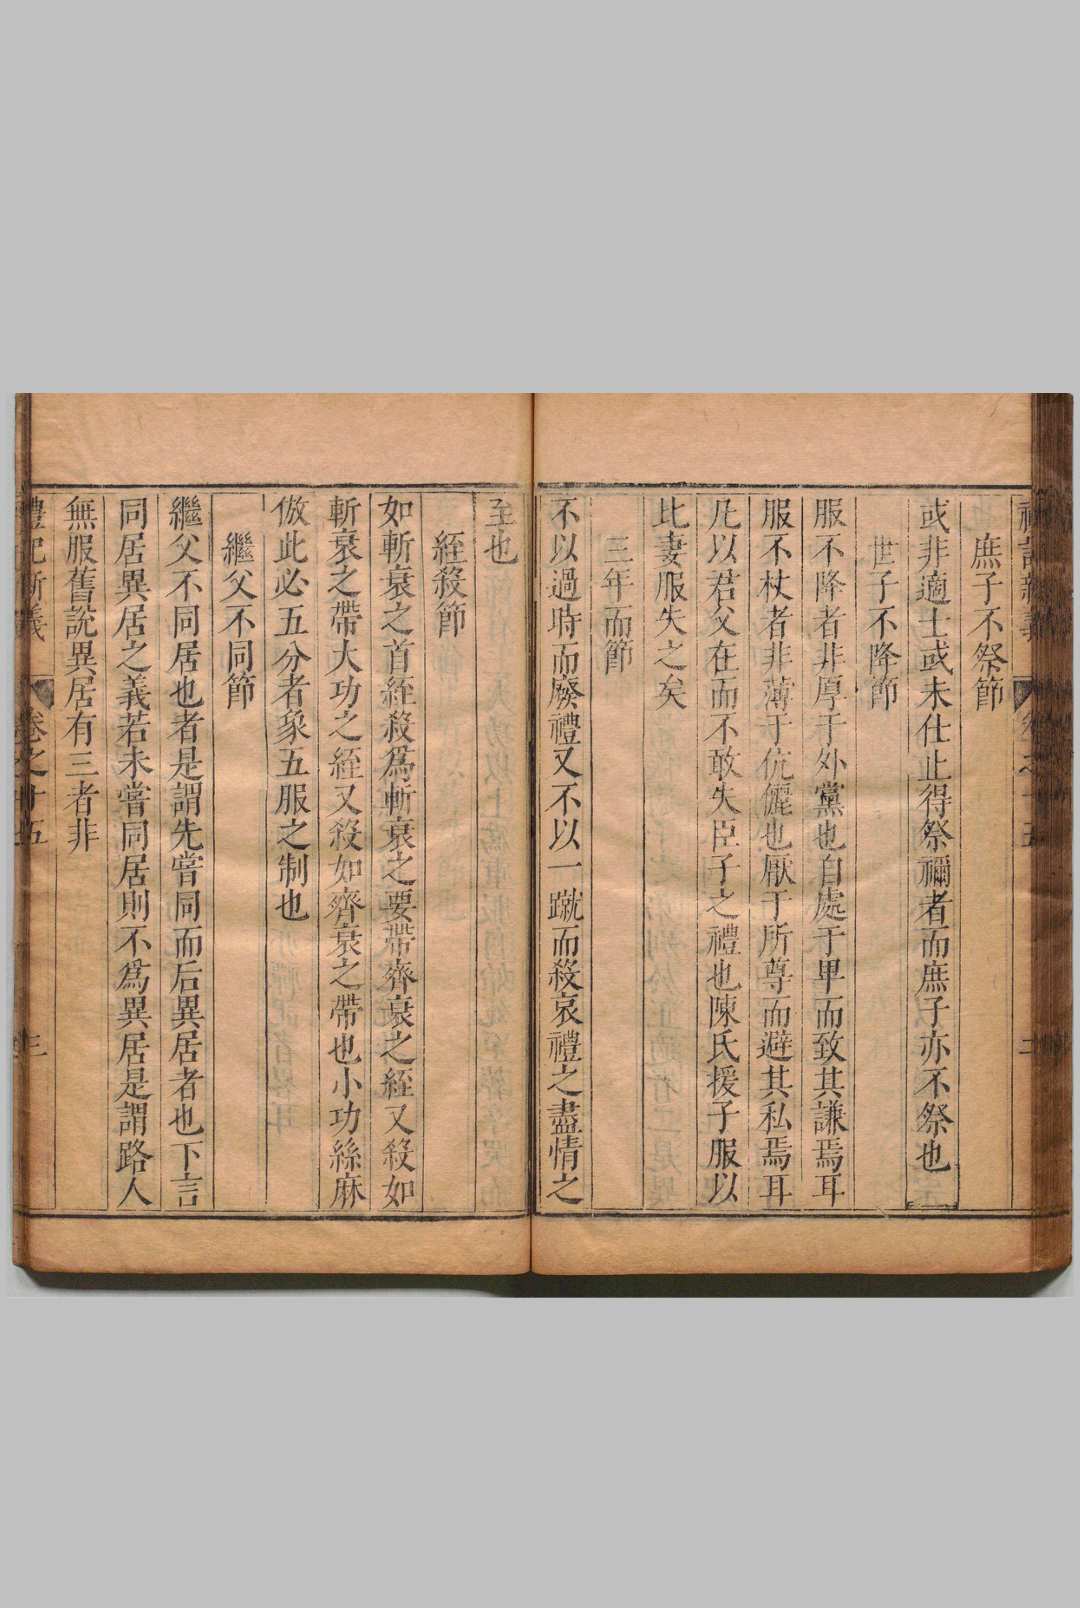 庶子不祭節
或非適士或未仕止得祭禰者而庶子亦不祭也
世子不降節
服不降者非厚于外黨也自處于卑而致其謙焉耳
服不杖者非薄于伉儷也厭于所尊而避其私焉耳
凡以君父在而不敢失臣子之禮也陳氏援子服以
比妻服失之矣
三年而節
不以過時而廢禮又不以一蹴而殺哀禮之盡情之
至也
絰殺節
如斬衰之首絰殺爲斬衰之要帶齊衰之絰又殺如
斬衰之帶大功之絰又殺如齊衰之帶也小功緦麻
倣此必五分者象五服之制也
繼父不同節
繼父不同居也者是謂先嘗同而后異居者也下言
同居異居之義若未嘗同居則不爲異居是謂路人
無服舊說異居有三者非
禮記新義 卷之十五 三